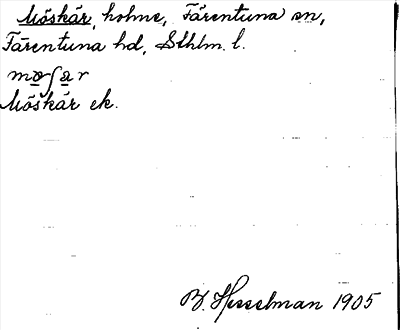 Möskär, holme, Färentuna sn,
Färentuna hd, Sthlm. l.
møʃar
Möskär ek.
B. Hesselman 1905